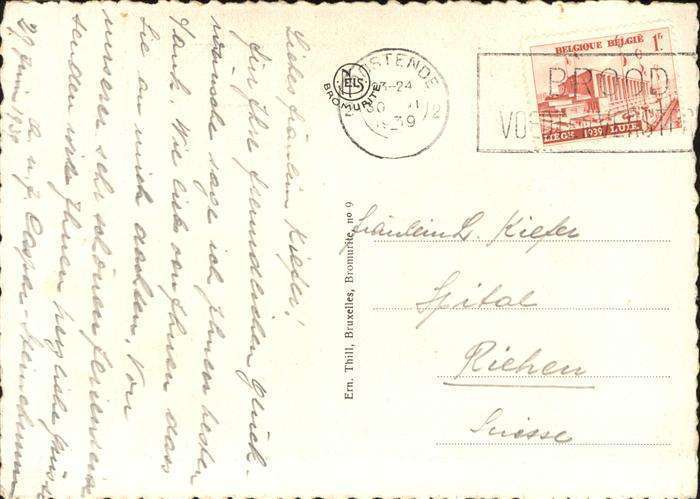 Liebes Fräulein Kiefer!
Für Ihre freundlichen Glück-
wünsche sage ich Ihnen besten
Dank. Wie lieb von Ihnen dass
Sie an mich dachten. Von
unserer sehr schönen Ferienreise
senden wir Ihnen herzliche Grüsse
A. u. J. Casper-
29. Juni 1939
OOSTENDE
23-24
30 VI
1939
BROMURITE
BELGIQUE BELGIË 1F
LIEGE 1939 LUIK
BROOD
Ern. Thill, Bruxelles, Bromurite, nº 9
Fräulein L. Kiefer
Spital
Riehen
Suisse